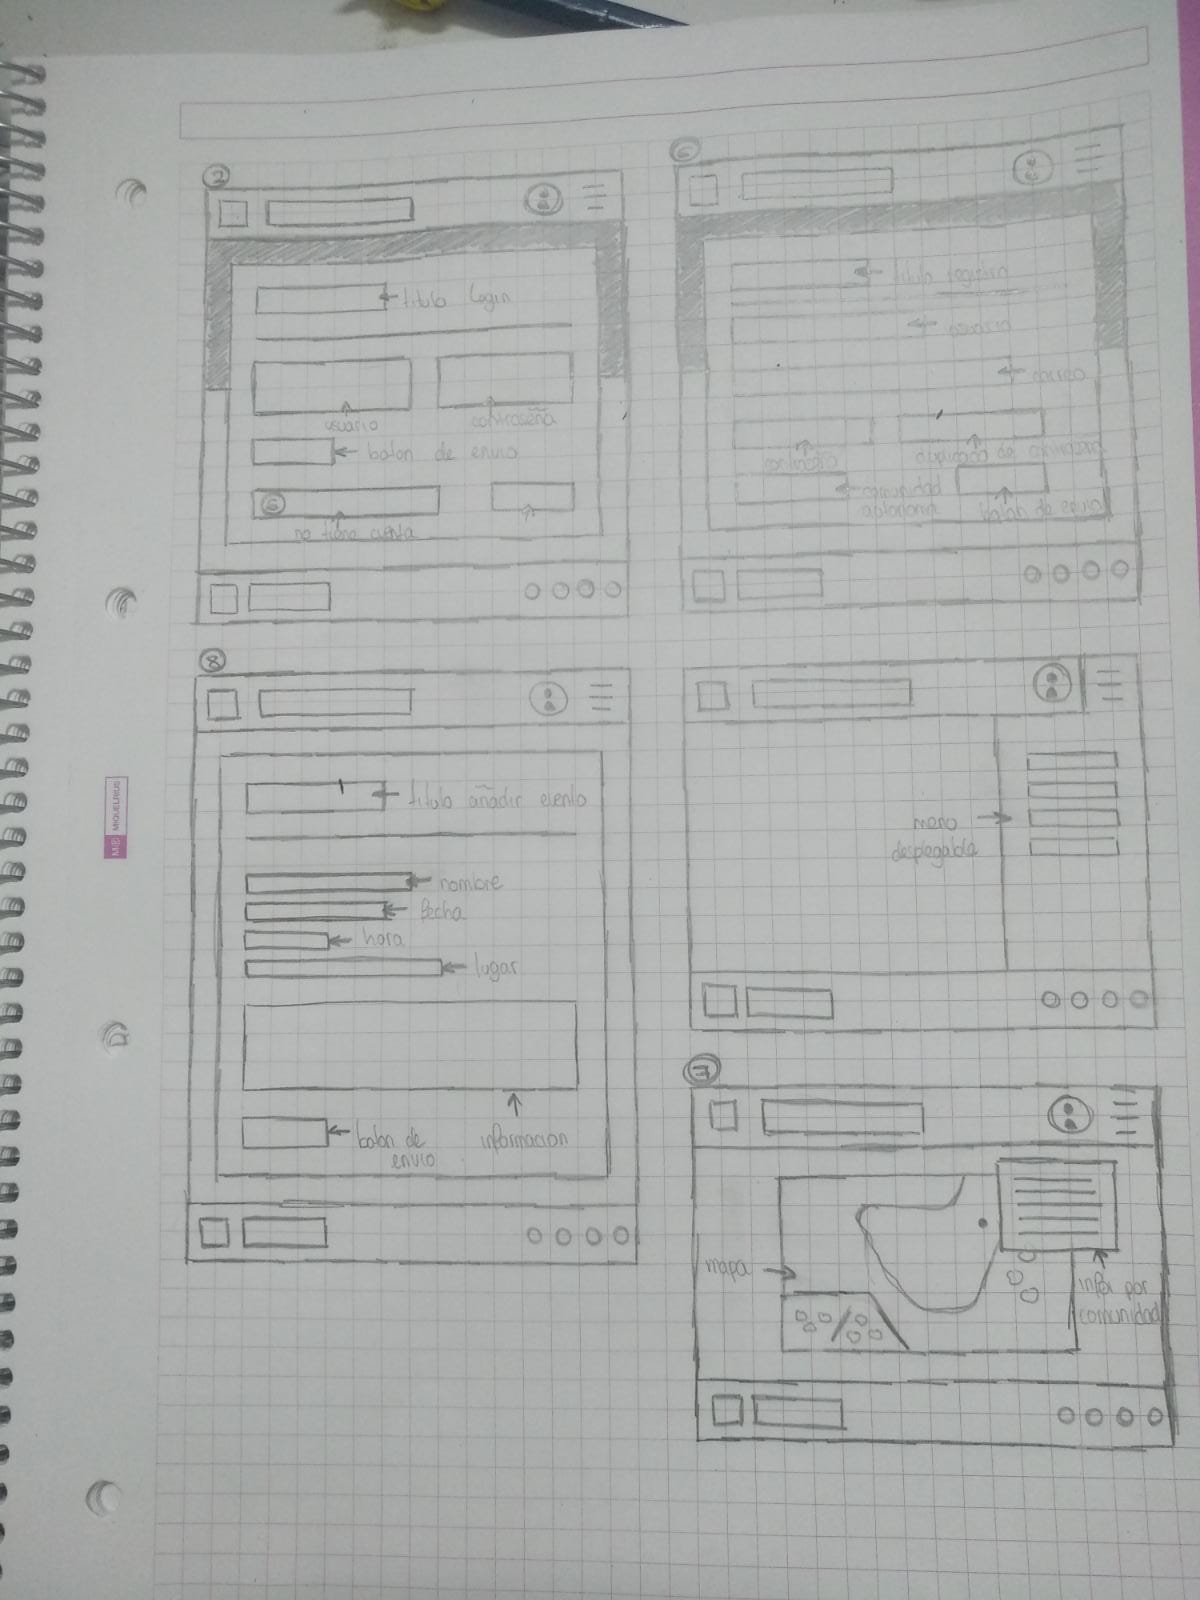 2
titulo login
usuario
contraseña
boton de envio
6
no tiene cuenta
6
titulo registro
usuario
correo
contraseña
duplicado de contraseña
comunidad
autonoma
boton de envio
8
titulo añadir evento
nombre
fecha
hora
lugar
informacion
boton de
envio
menu
desplegable
mapa
infor por
comunidad
MIQUELRIUS